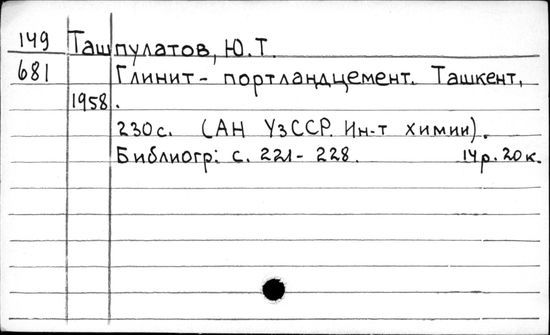 149 Ташпулатов, Ю.Т.
681 Глинит- портландцемент. Ташкент,
1958.
230с. (АН УзССР. Ин-т химии).
Библиогр: с. 221- 228. 14р.20к.